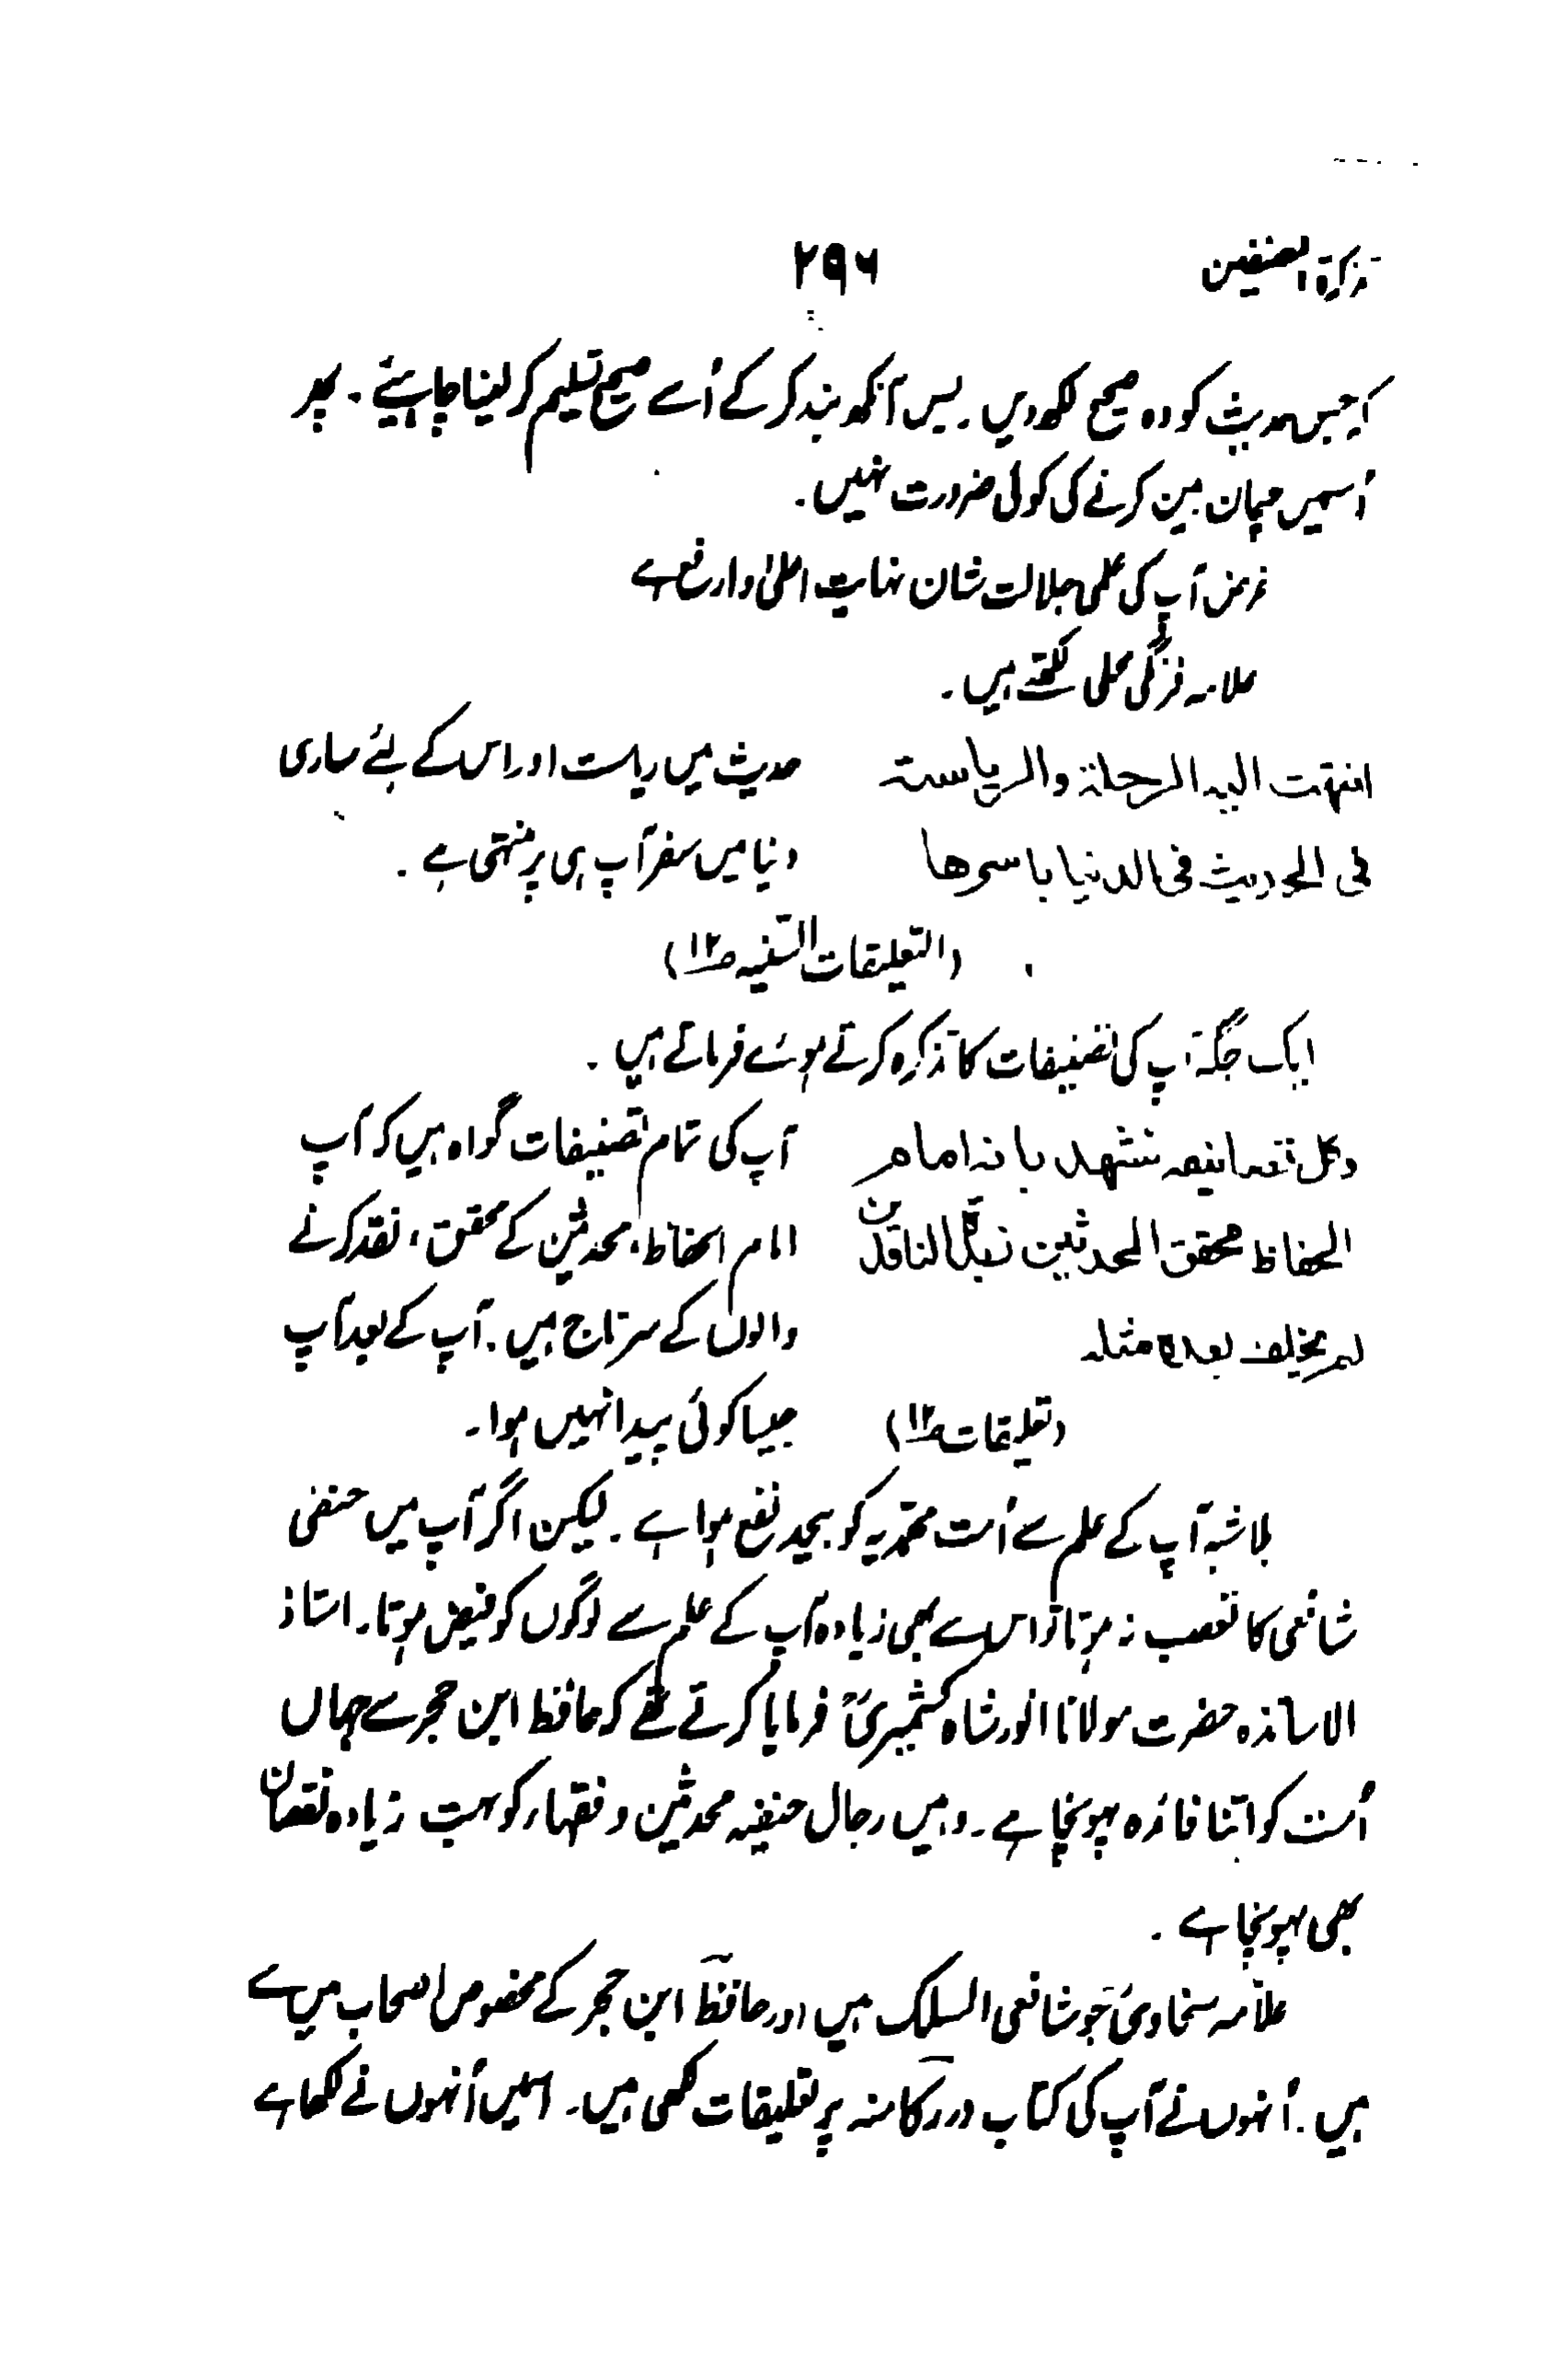 تذکرۃ المصنفین ۲۹۶
کہ جس حدیث کو وہ صحیح لکھدیں۔ بس آنکھ بند کر کے اُسے صحیح تسلیم کر لینا چاہیئے۔ پھر
اُسمیں چھان بین کرنے کی کوئی ضرورت نہیں۔
غرض آپ کی علمی جلالت شان نہایت اعلیٰ وارفع ہے
علامہ فرنگی محلی لکھتے ہیں۔
انتهت الیه الرحلة والریاسة حدیث میں ریاست اور اس کے لئے ساری
فی الحدیث فی الدنیا باسرها دنیا میں سفر آپ ہی پر منتہی ہے۔
(التعلیقات السنیہ ص۱۲)
ایک جگہ آپ کی تصنیفات کا تذکرہ کرتے ہوئے فرماتے ہیں۔
وکل تصانیفه تشهد بانه امام آپ کی تمام تصنیفات گواہ ہیں کہ آپ
الحفاظ محقق المحدثین زبدة الناقدین امام الحفاظ، محدثین کے محقق، نقد کرنے
لم یخلف بعده مثله والوں کے سرتاج ہیں۔ آپ کے بعد آپ
(تعلیقات ص۱۲) جیسا کوئی پیدا نہیں ہوا۔
بلا شبہ آپ کے علم سے اُمت محمّدیہ کو بیحد نفع ہوا ہے۔ لیکن اگر آپ میں حنفی
شافعی کا تعصب نہ ہوتا تو اس سے بھی زیادہ آپ کے علم سے لوگوں کو فیض ہوتا۔ استاذ
الاساتذہ حضرت مولانا انور شاہ کشمیریؒ فرمایا کرتے تھے کہ حافظ ابن حجر سے جہاں
اُمت کو اتنا فائدہ پہونچا ہے۔ وہیں رجال حنفیہ محدثین و فقہاء کو بہت زیادہ نقصان
بھی پہونچا ہے۔
علاّمہ سخاویؒ جو شافعی المسلک ہیں اور حافظ ابن حجر کے مخصوص اصحاب میں سے
ہیں۔ اُنہوں نے آپ کی کتاب درر کامنہ پر تعلیقات لکھی ہیں۔ اسمیں اُنہوں نے لکھا ہے